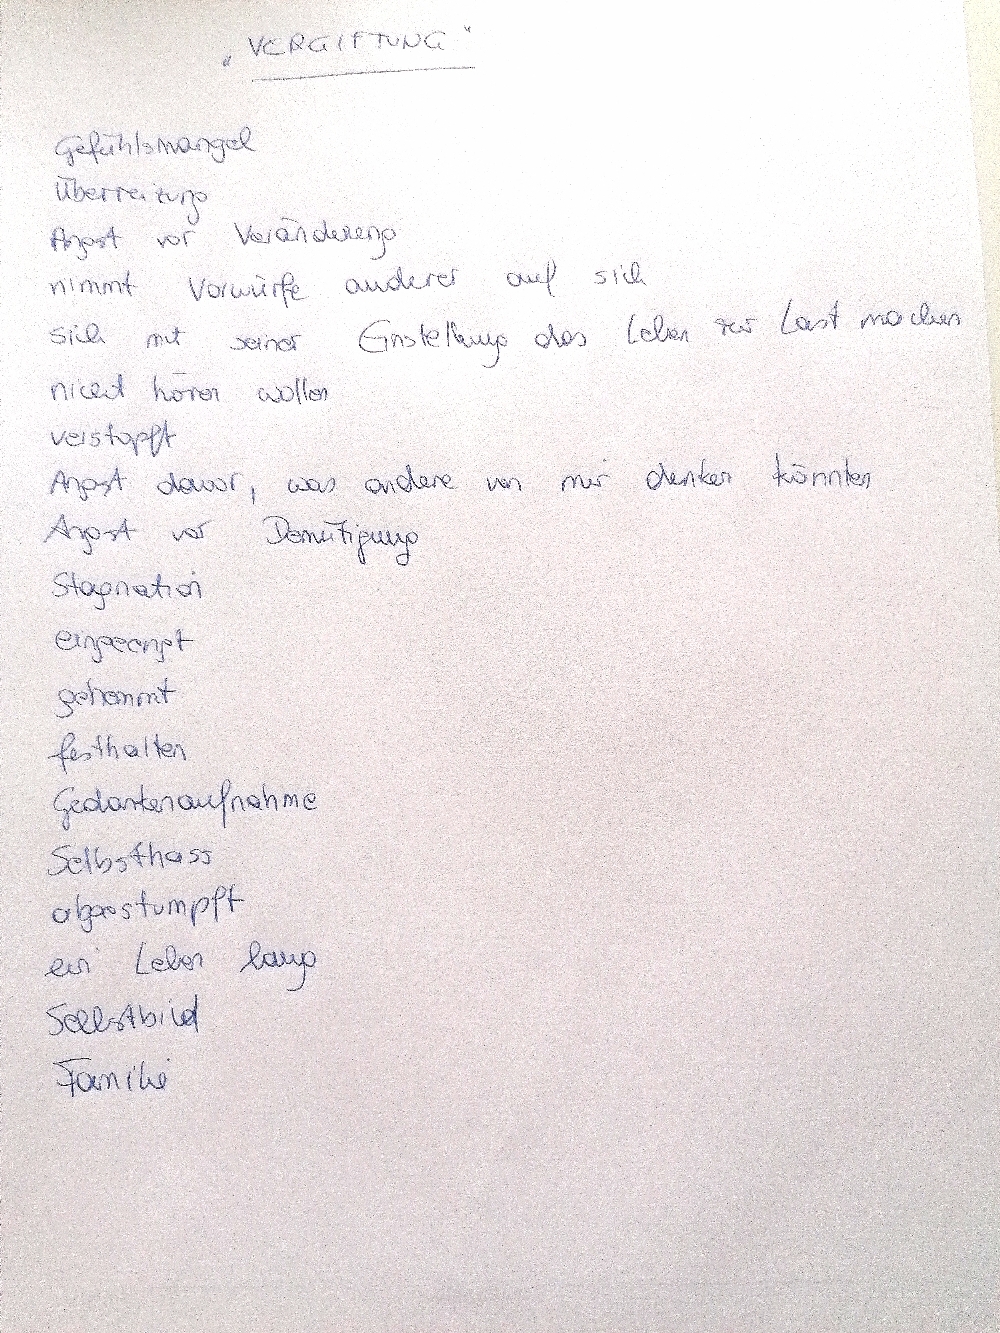 „VERGIFTUNG"
Gefühlsmangel
Überreizung
Angst vor Veränderung
nimmt Vorwürfe anderer auf sich
sich mit seiner Einstellung das Leben zur Last machen
nicht hören wollen
verstopft
Angst davor, was andere von mir denken könnten
Angst vor Demütigung
Stagnation
eingeengt
gehemmt
festhalten
Gedankenaufnahme
Selbsthass
abgestumpft
ein Leben lang
Selbstbild
Familie